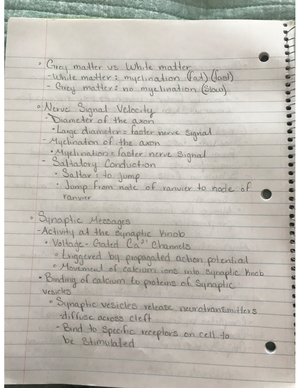 ° Grey matter vs White matter
- White matter: myelination (fat) (fast)
- Grey matter: no myelination (slow)
° Nerve Signal Velocity
- Diameter of the axon
• Large diameter = faster nerve signal
- Myelination of the axon
• Myelination = faster nerve signal
- Saltatory Conduction
• Saltar: to jump
- Jump from node of ranvier to node of
ranvier
° Synaptic Messages
- Activity at the Synaptic Knob
• Voltage-Gated Ca²⁺ Channels
° Triggered by propagated action potential
° Movement of calcium ions into synaptic knob
- Binding of calcium to proteins of synaptic
vesicles
° Synaptic vesicles release neurotransmitters
diffuse across cleft
- Bind to specific receptors on cell to
be stimulated